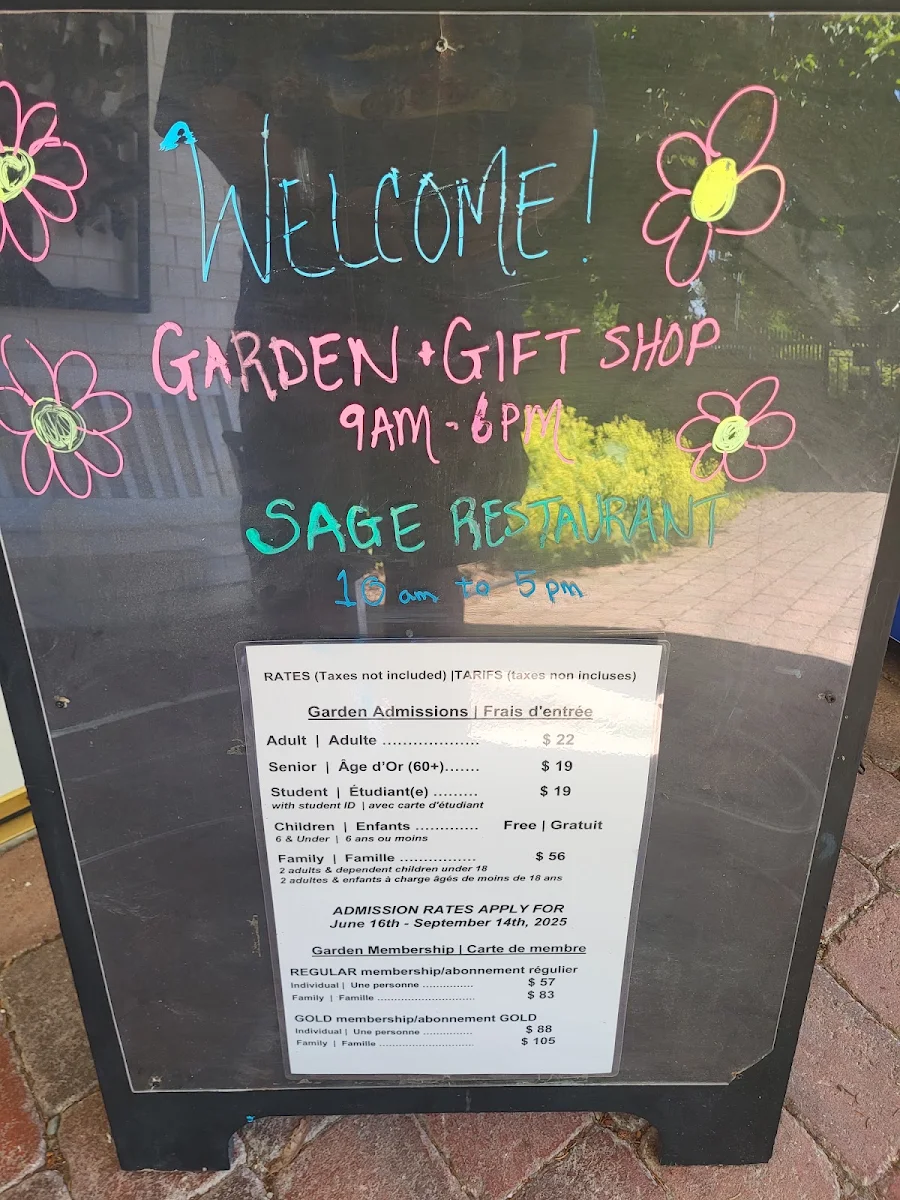 WELCOME!
GARDEN + GIFT SHOP
9AM - 6PM
SAGE RESTAURANT
10 am to 5 pm
RATES (Taxes not included) |TARIFS (taxes non incluses)
Garden Admissions | Frais d'entrée
Adult | Adulte ................... $ 22
Senior | Âge d'Or (60+)....... $ 19
Student | Étudiant(e) ......... $ 19
with student ID | avec carte d'étudiant
Children | Enfants ............. Free | Gratuit
6 & Under | 6 ans ou moins
Family | Famille ................ $ 56
2 adults & dependent children under 18
2 adultes & enfants à charge âgés de moins de 18 ans
ADMISSION RATES APPLY FOR
June 16th - September 14th, 2025
Garden Membership | Carte de membre
REGULAR membership/abonnement régulier
Individual | Une personne ............... $ 57
Family | Famille ............................ $ 83
GOLD membership/abonnement GOLD
Individual | Une personne ............... $ 88
Family | Famille ............................ $ 105